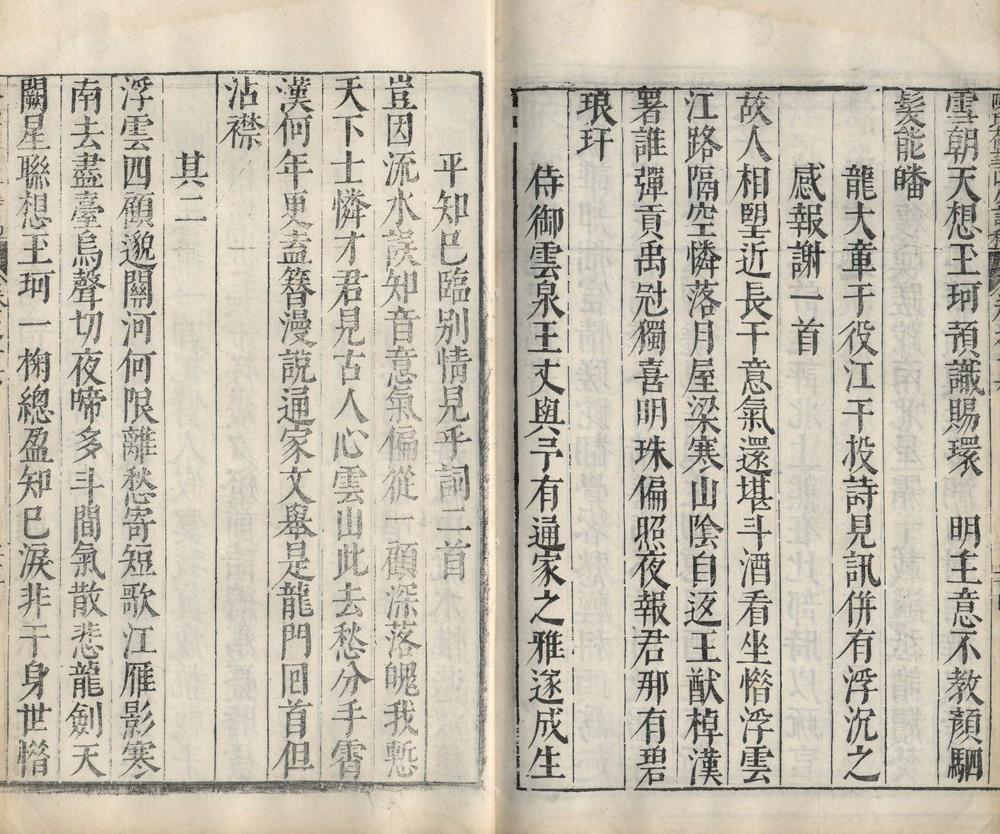 雪朝天想王珂預識賜環　明主意不教顏駟
鬂能皤
龍大章干役江干投詩見訊併有浮沉之
感報謝一首
故人相望近長干意氣還堪斗酒看坐憯浮雲
江路隔空憐落月屋梁寒山陰自返王猷棹漢
署誰彈貢禹冠獨喜明珠偏照夜報君那有碧
琅玕
侍御雲泉王丈與予有通家之雅遂成生
平知巳臨别情見乎詞二首
豈因流水誤知音意氣偏從一顧深落魄我慙
天下士憐才君見古人心雲山此去愁分手霄
漢何年更盍簪漫說通家文舉是龍門回首但
沾襟
其二
浮雲四顧邈關河何限離愁寄短歌江雁影寒
南去盡臺烏聲切夜啼多斗間氣散悲龍劍天
闕星聯想玉珂一掬總盈知巳淚非干身世憯